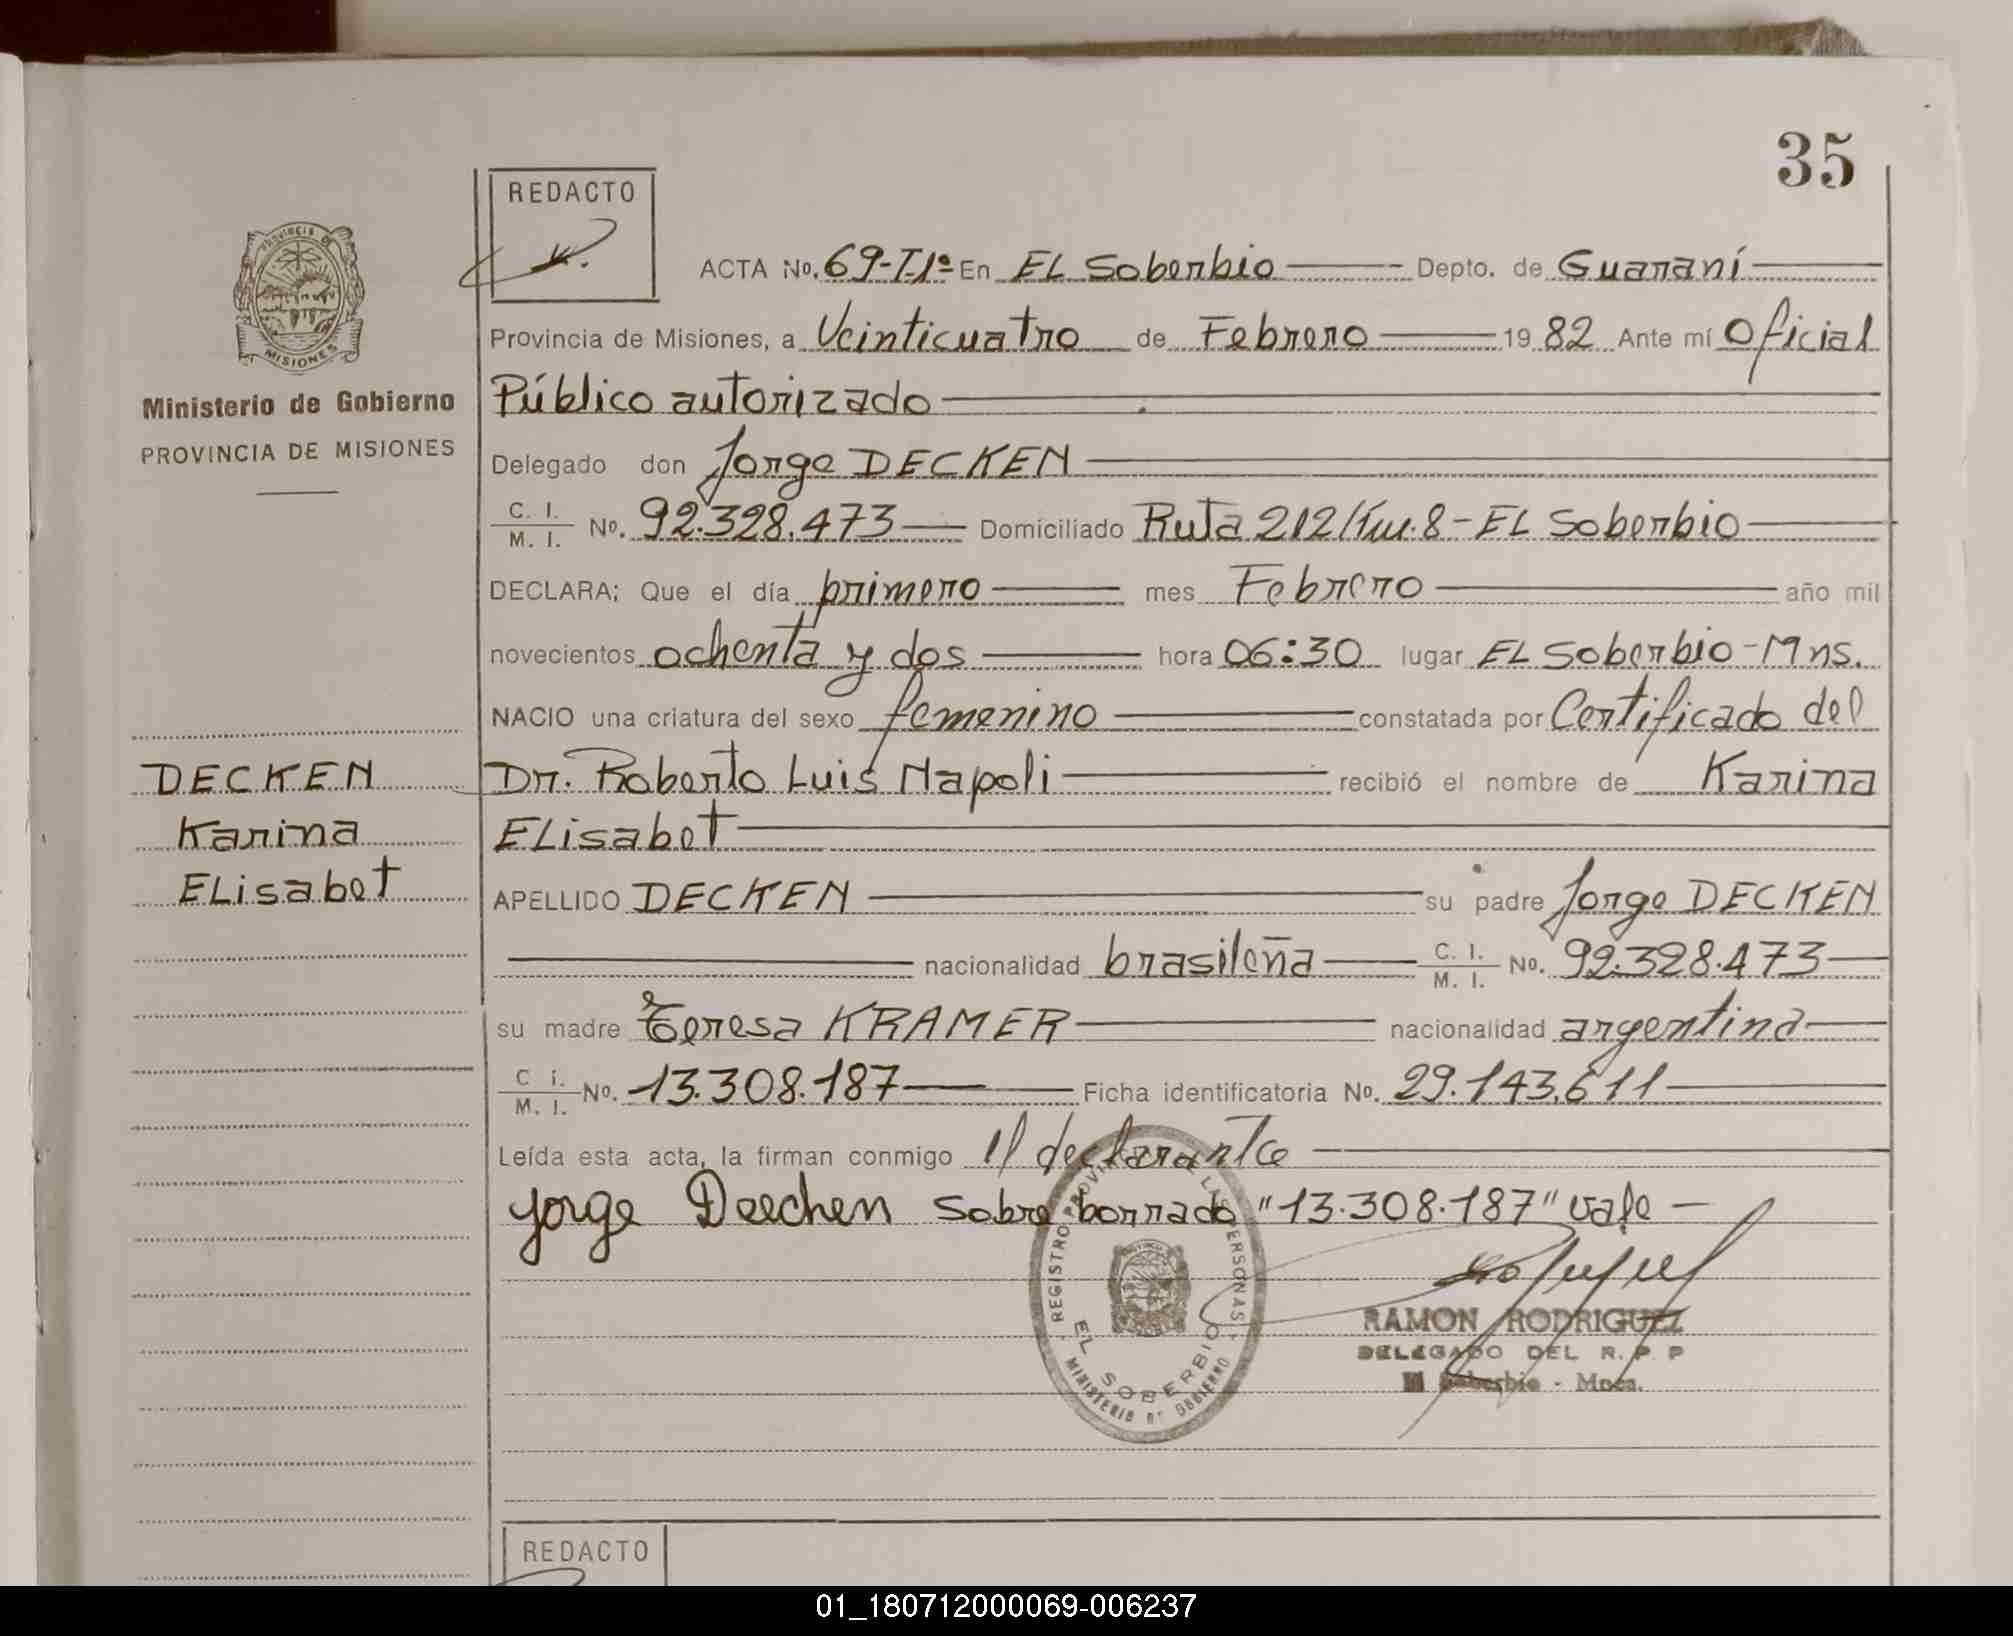 35
REDACTO
PROVINCIA DE
MISIONES
ACTA No. 69-T.1º En EL Soberbio Depto. de Guaraní
Provincia de Misiones, a Veinticuatro de Febrero 19 82 Ante mí Oficial
Ministerio de Gobierno
Público autorizado
PROVINCIA DE MISIONES
Delegado don Jorge DECKEN
C. I. / M. I. No. 92.328.473 Domiciliado Ruta 212/Km.8-EL Soberbio
DECLARA; Que el día primero mes Febrero año mil
novecientos ochenta y dos hora 06:30 lugar EL Soberbio-Mns.
NACIO una criatura del sexo femenino constatada por Certificado del
DECKEN
Dr. Roberto Luis Napoli recibió el nombre de Karina
Karina
ELisabet
ELisabet
APELLIDO DECKEN su padre Jorge DECKEN
nacionalidad brasileña C. I. / M. I. No. 92.328.473
su madre Teresa KRAMER nacionalidad argentina
C i. / M. I. No. 13.308.187 Ficha identificatoria No. 29.143.611
Leída esta acta, la firman conmigo el declarante
Jorge Deechen Sobre borrado "13.308.187" vale
REGISTRO PROVINCIAL DE LAS PERSONAS
EL SOBERBIO
MINISTERIO DE GOBIERNO
RAMON RODRIGUEZ
DELEGADO DEL R. P. P
El Soberbio - Mnes.
REDACTO
01_180712000069-006237